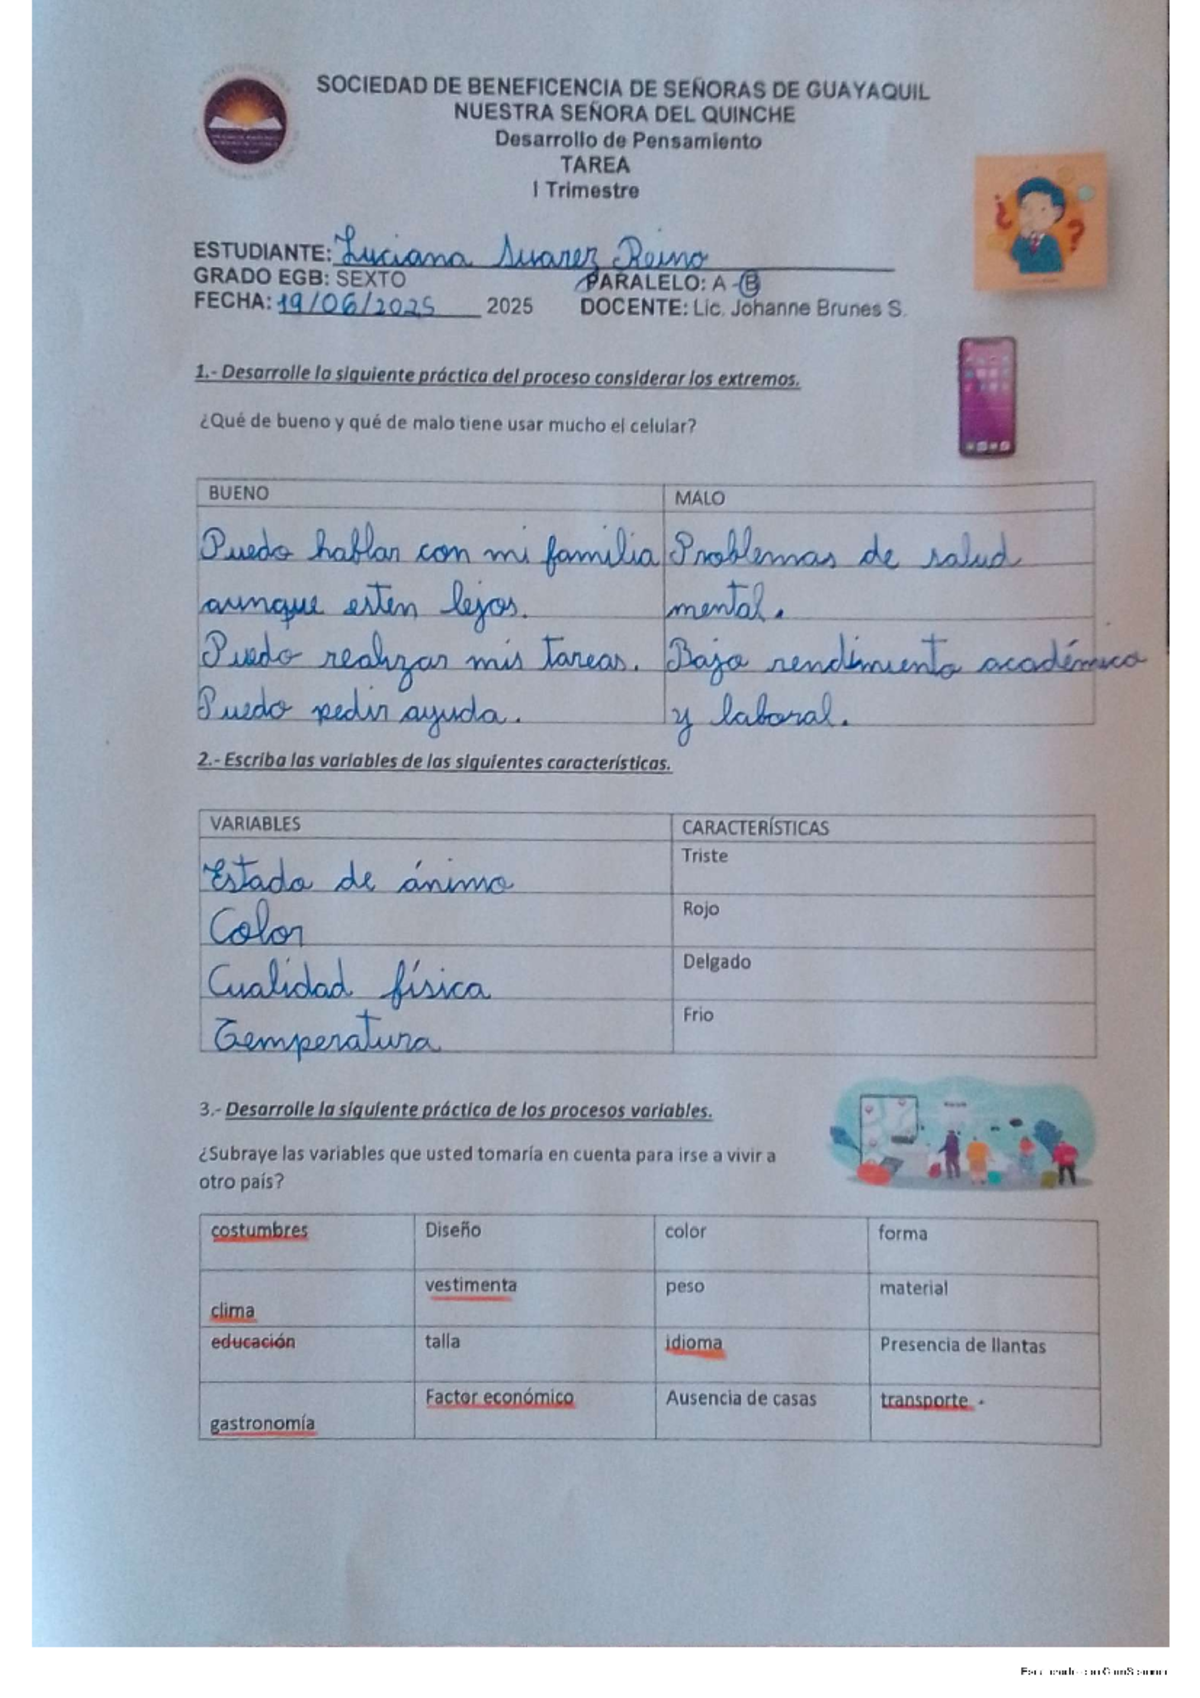 SOCIEDAD DE BENEFICENCIA DE SEÑORAS DE GUAYAQUIL
NUESTRA SEÑORA DEL QUINCHE
Desarrollo de Pensamiento
TAREA
I Trimestre
ESTUDIANTE: Luciana Suarez Reino
GRADO EGB: SEXTO PARALELO: A - B
FECHA: 19/06/2025 2025 DOCENTE: Lic. Johanne Brunes S.
1.- Desarrolle la siguiente práctica del proceso considerar los extremos.
¿Qué de bueno y qué de malo tiene usar mucho el celular?
BUENO MALO
Puedo hablar con mi familia Problemas de salud
aunque esten lejos. mental.
Puedo realizar mis tareas. Bajo rendimiento académico
Puedo pedir ayuda. y laboral.
2.- Escriba las variables de las siguientes características.
VARIABLES CARACTERÍSTICAS
Estado de ánimo Triste
Color Rojo
Cualidad física Delgado
Temperatura Frio
3.- Desarrolle la siguiente práctica de los procesos variables.
¿Subraye las variables que usted tomaría en cuenta para irse a vivir a
otro país?
costumbres Diseño color forma
clima vestimenta peso material
educación talla idioma Presencia de llantas
gastronomía Factor económico Ausencia de casas transporte